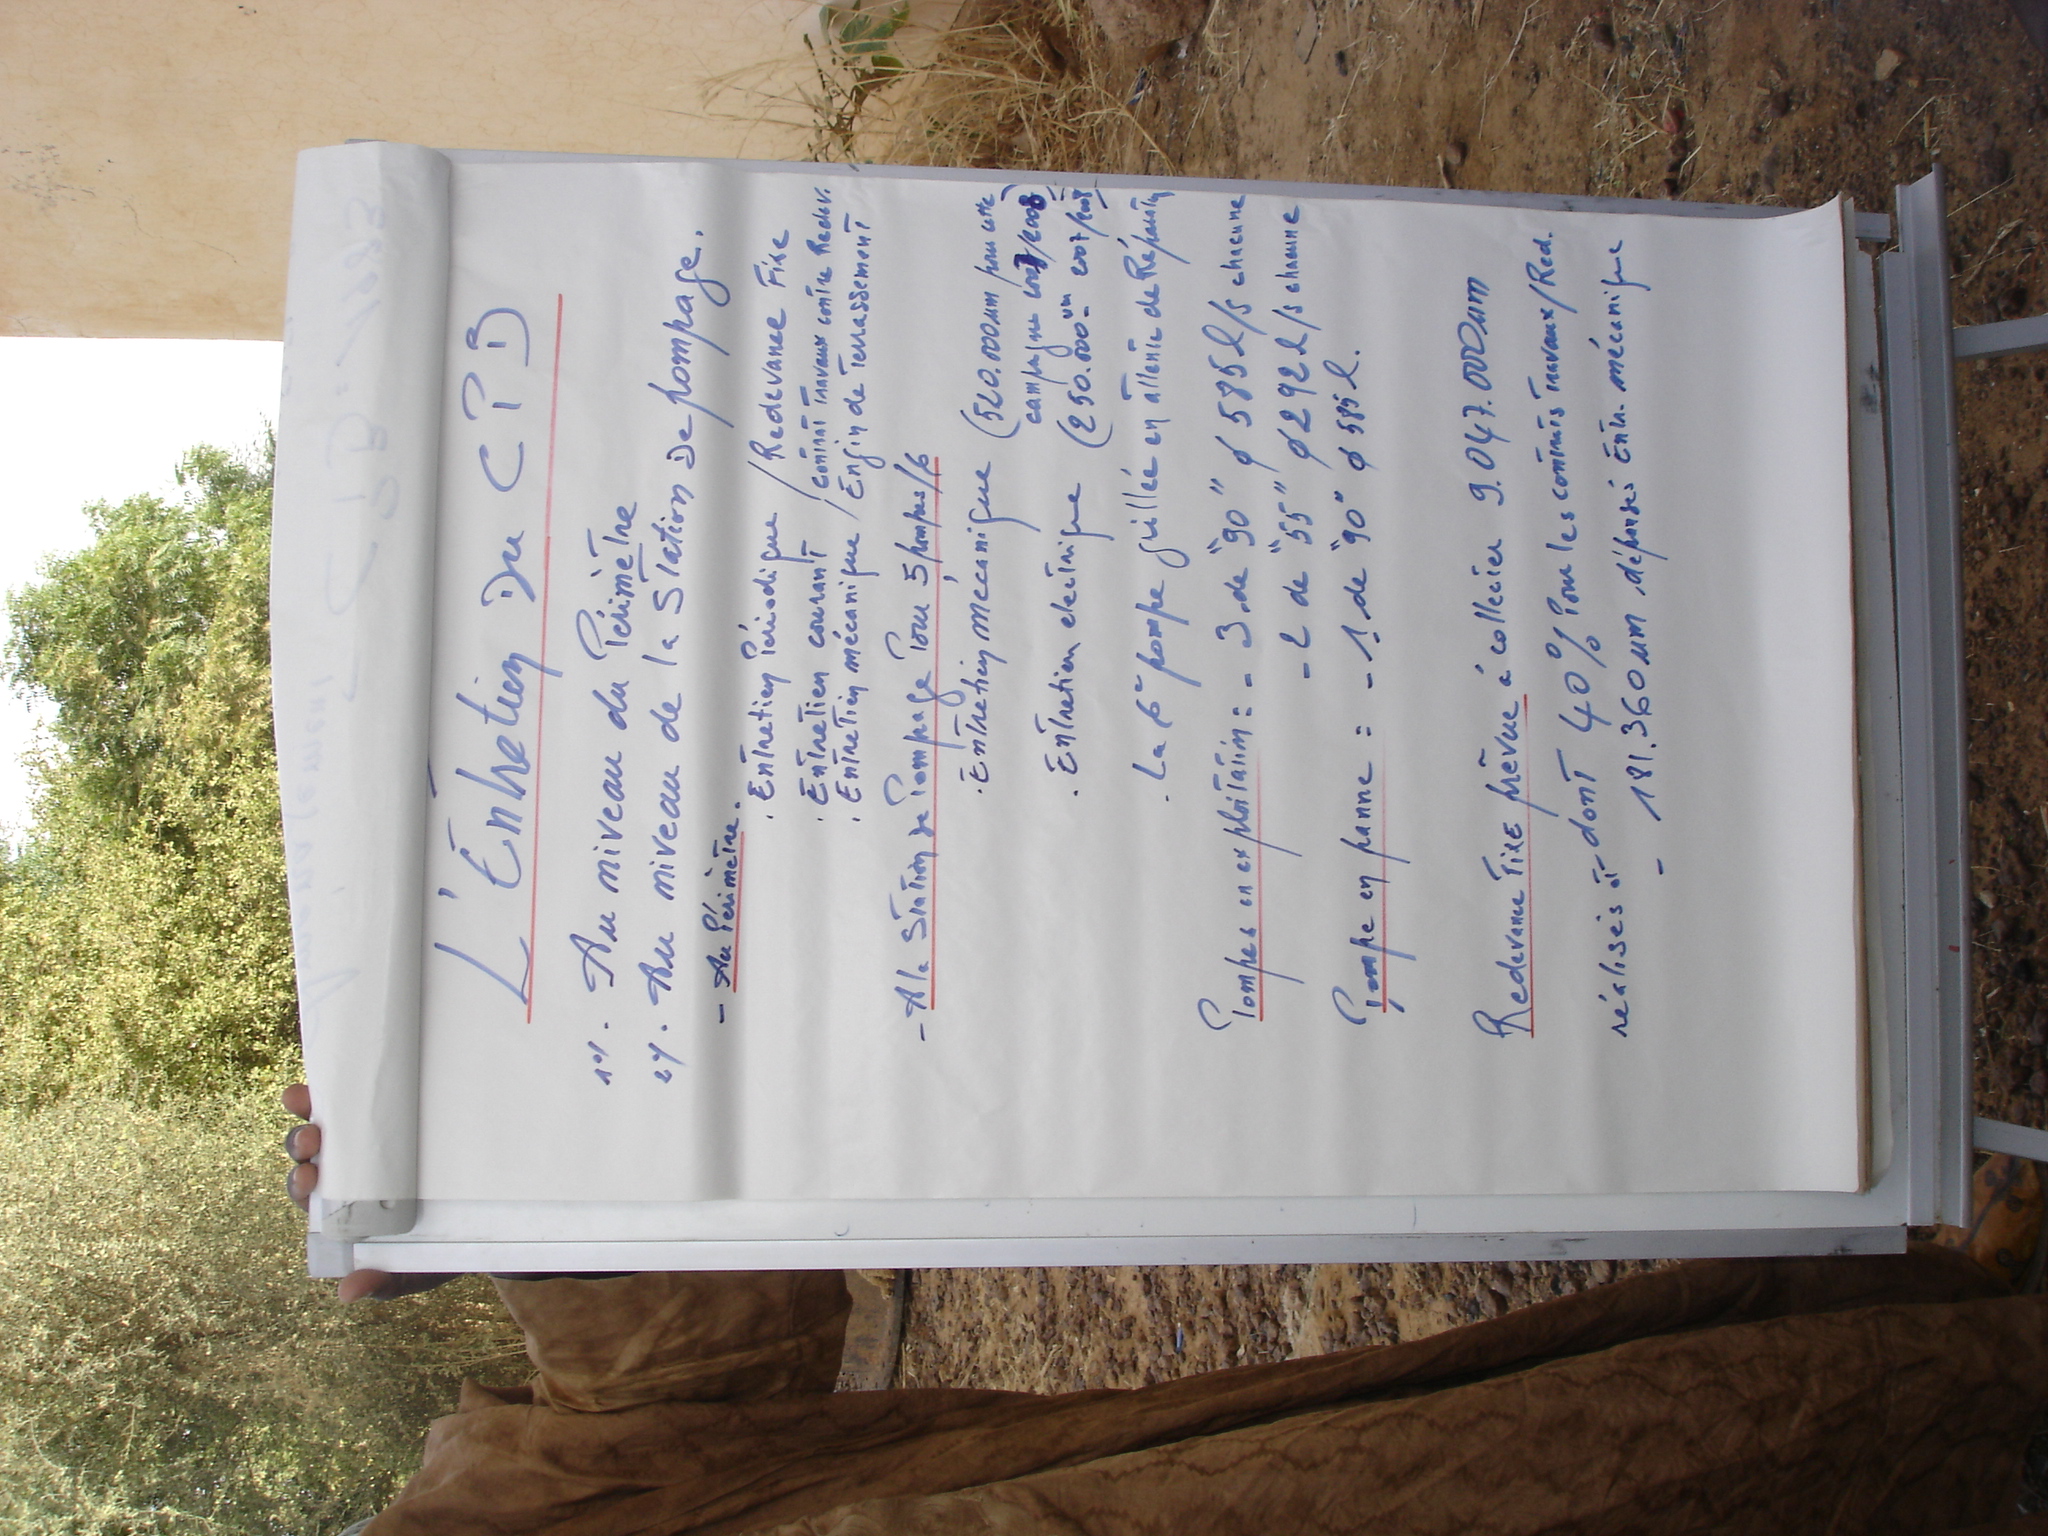 L'Entretien Du CPB
1°/. Au niveau du Périmètre
2°/. Au niveau de la Station De pompage.
- Au Périmètre.
. Entretien Périodique / Redevance Fixe
. Entretien courant / contrat travaux contre Redev.
. Entretien mécanique / Engin de terrassement
- A la Station de Pompage Pour 5 pompes/6
. Entretien mécanique (520.000um pour cette
campagne 2007/2008)
. Entretien electrique (250.000um 2007/2008)
. La 6e pompe grillée en attente de Réparation
Pompes en exploitation : - 3 de "90" ø 585 l/s chacune
- 2 de "55" ø 292 l/s chacune
Pompe en panne : - 1 de "90" ø 585 l.
Redevance Fixe prévue à collecter 9.047.000um
dont 40% Pour les contrats travaux/Red.
réalisés et
- 181.360um dépensés Entr. mécanique